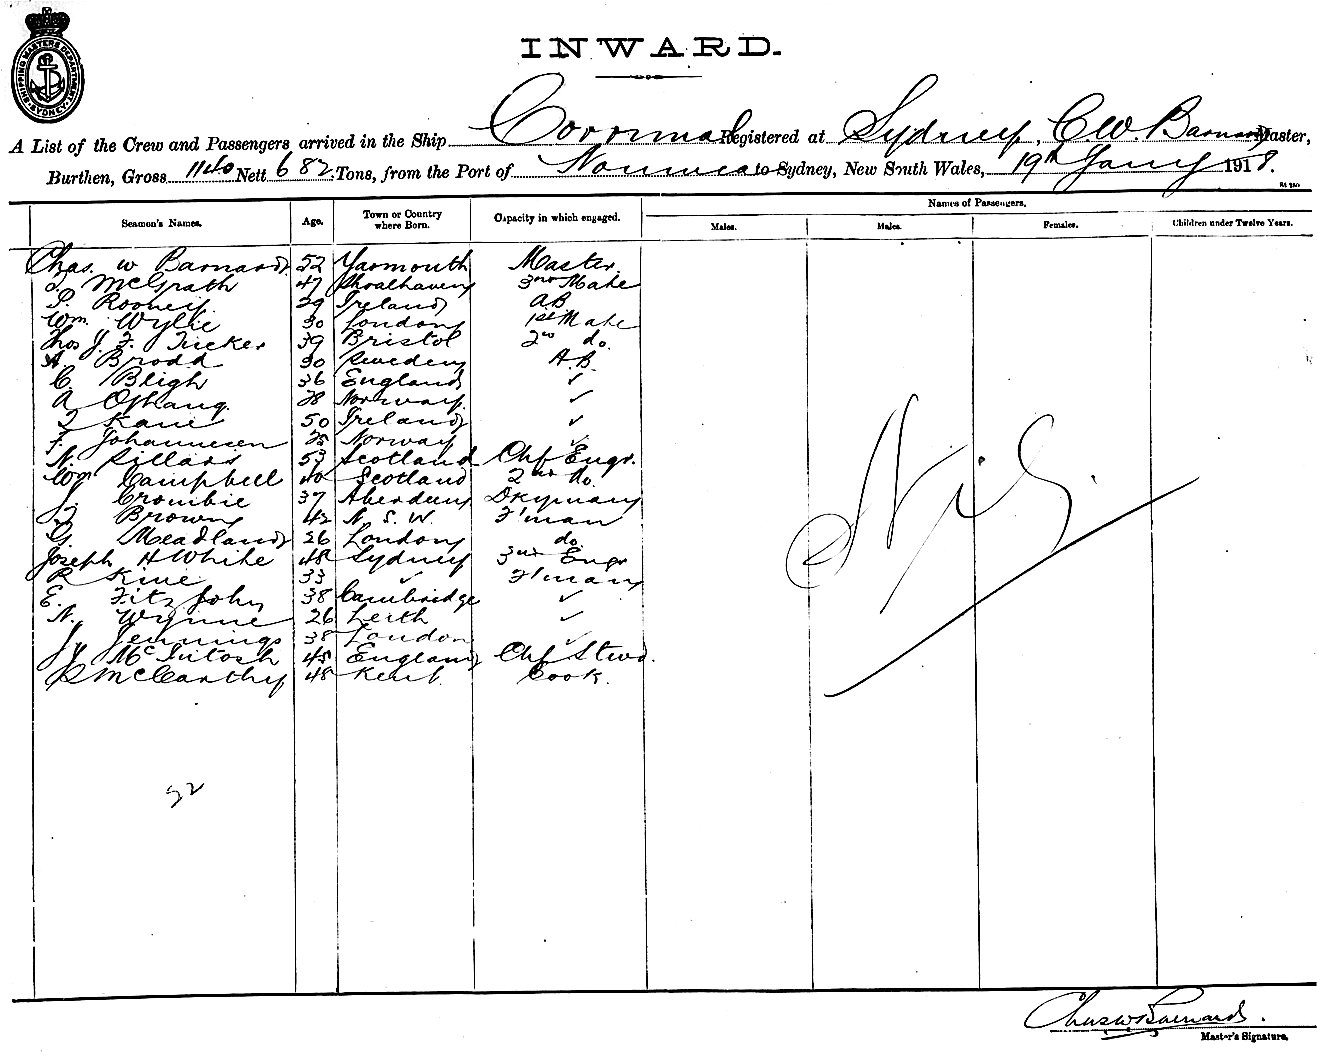 SHIPPING MASTERS DEPARTMENT SYDNEY
INWARD.
A List of the Crew and Passengers arrived in the Ship Corrimal Registered at Sydney, C.W. Barnard Master,
Burthen, Gross 1140 Nett 682 Tons, from the Port of Noumea to Sydney, New South Wales, 19th Jany 1918.
Names of Passengers.
Seamen's Names. Age. Town or Country where Born. Capacity in which engaged. Males. Males. Females. Children under Twelve Years.
Chas. W Barnard 52 Yarmouth Master
McGrath 47 Shoalhaven 3rd Mate
P. Rooney 29 Ireland AB
Wm. Wylie 30 London 1st Mate
Thos J. F. Tucker 39 Bristol 2nd do.
A. Brodd 30 Sweden A.B.
C. Bligh 36 England ✓
A 28 Norway ✓
Kane 50 Ireland ✓
F. Johannesen Norway ✓
N. Pillars 53 Scotland Chf Engr.
Wm Campbell 40 Scotland 2nd do.
J. Crombie 37 Aberdeen Dkyman
Brown 42 N. S. W. F'man
G. Meadland 26 London do.
Joseph H White 48 Sydney 3rd Engr
R Kine 33 ✓ F'man
E. Fitz John 38 Cambridge ✓
N. Wynne 26 Leith ✓
J. Jennings 38 London ✓
McIntosh 45 England Chf Stwd.
R McCarthy 48 Kent Cook.
Nil.
22
Chas W Barnard.
Master's Signature.